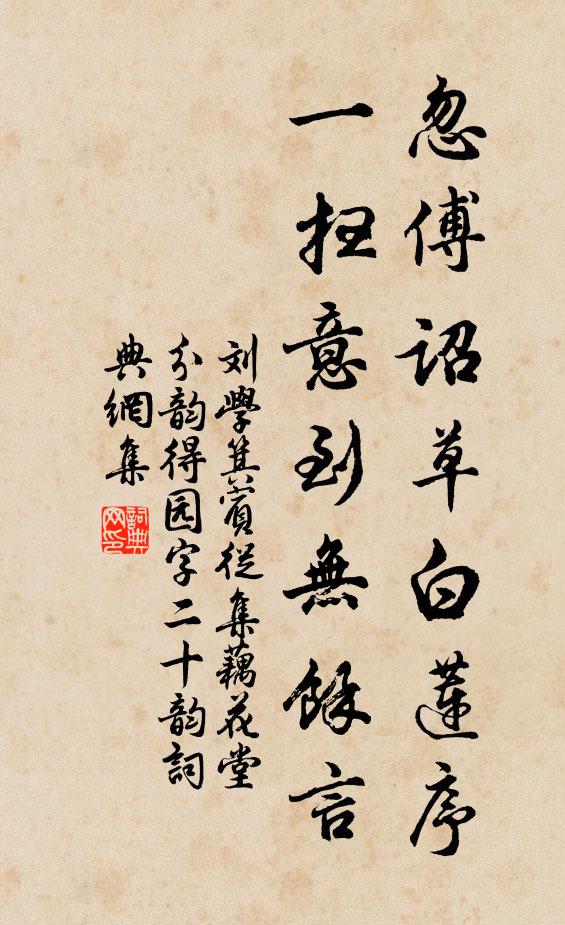 忽傅詔草白蓮序
一扫意到無餘言
刘學箕賓從集藕花堂
分韵得园字二十韵詞
典網集
詞典网印